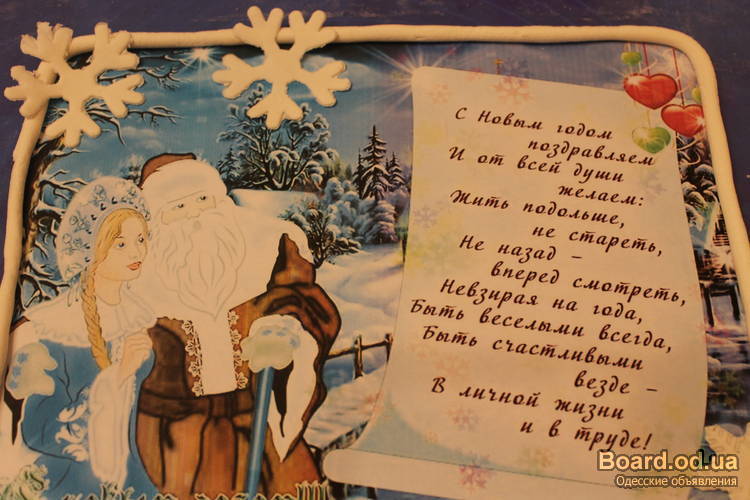 С Новым годом
поздравляем
И от всей души
желаем:
Жить подольше,
не стареть,
Не назад –
вперед смотреть,
Невзирая на года,
Быть веселыми всегда,
Быть счастливыми
везде –
В личной жизни
и в труде!
Board.od.ua
Одесские объявления